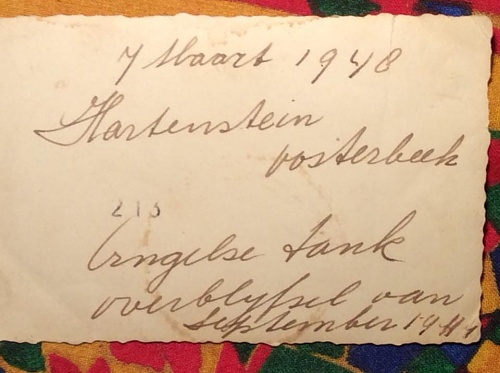 7 Maart 1948
Hartenstein
oosterbeek
213
Engelse tank
overblyfsel van
September 1944